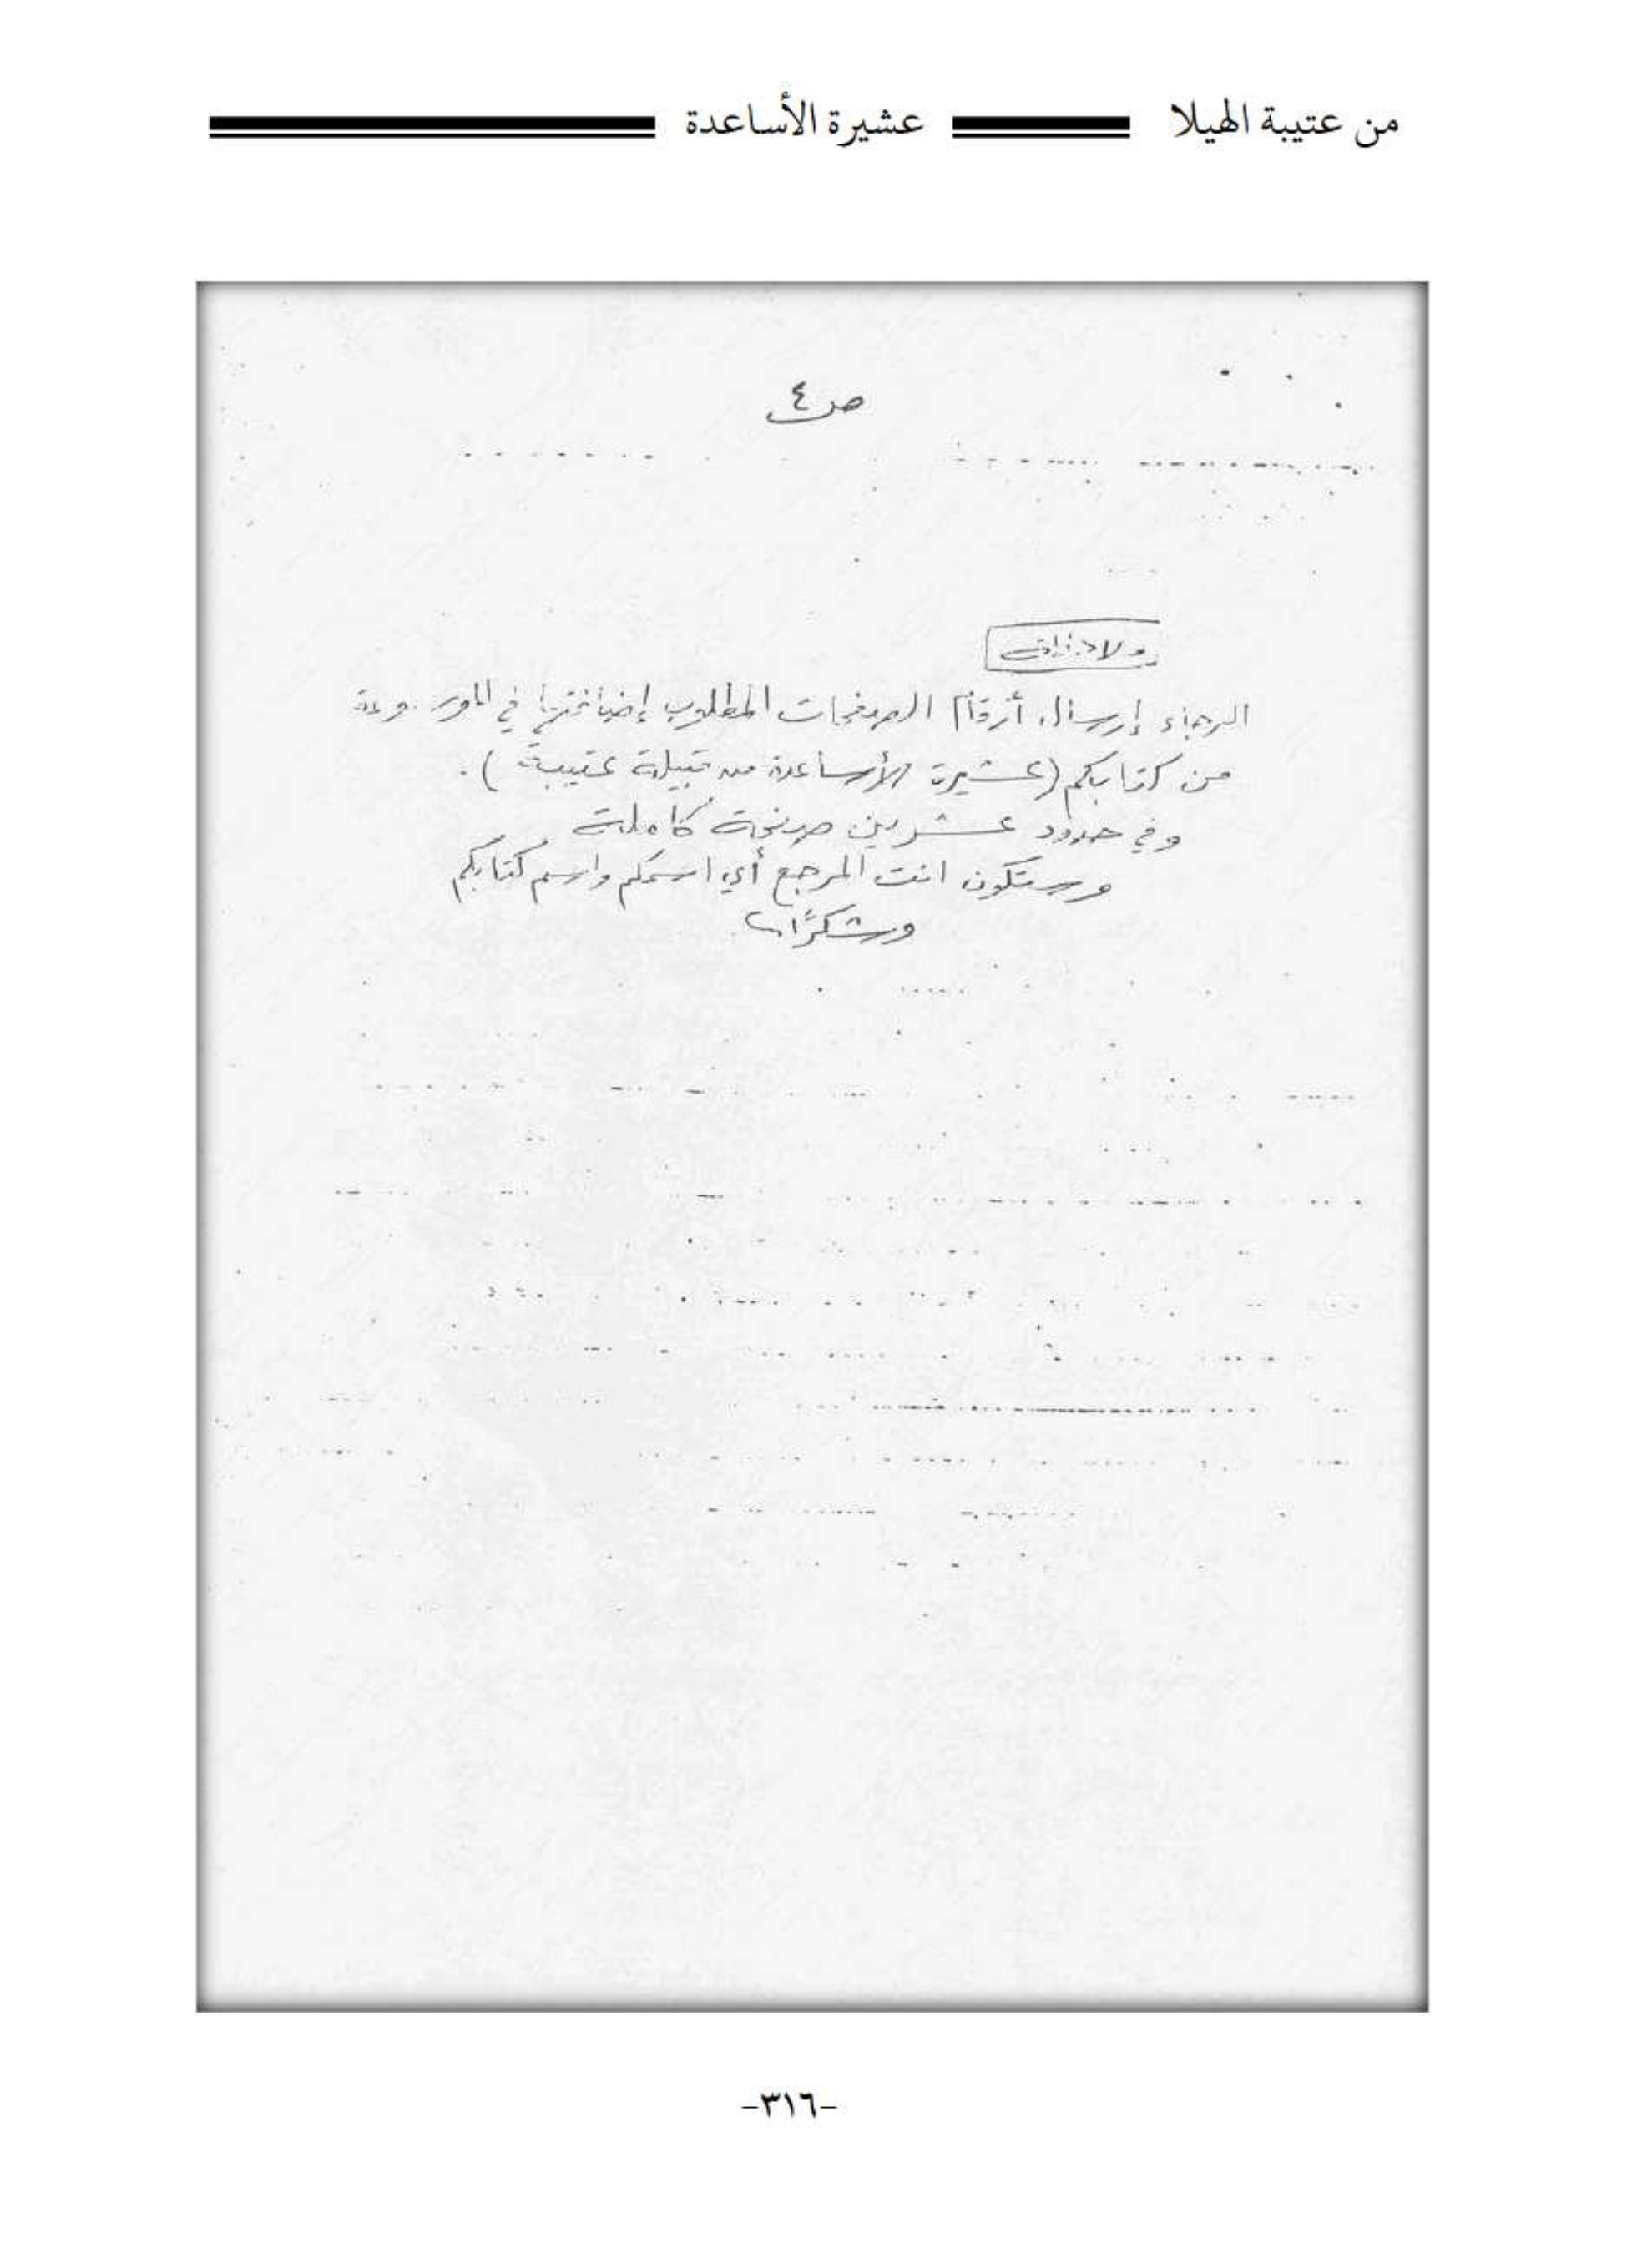 من عتيبة الهيلا عشيرة الأساعدة
ص ٤
الرجاء إرسال أرقام الصفحات المطلوب إضافتها في الموسوعة
من كتابكم (عشيرة الأساعدة من قبيلة عتيبة).
وفي حدود عشرين صفحة كاملة
وستكون انت المرجع أي اسمكم واسم كتابكم
وشكرًا،،
-٣١٦-